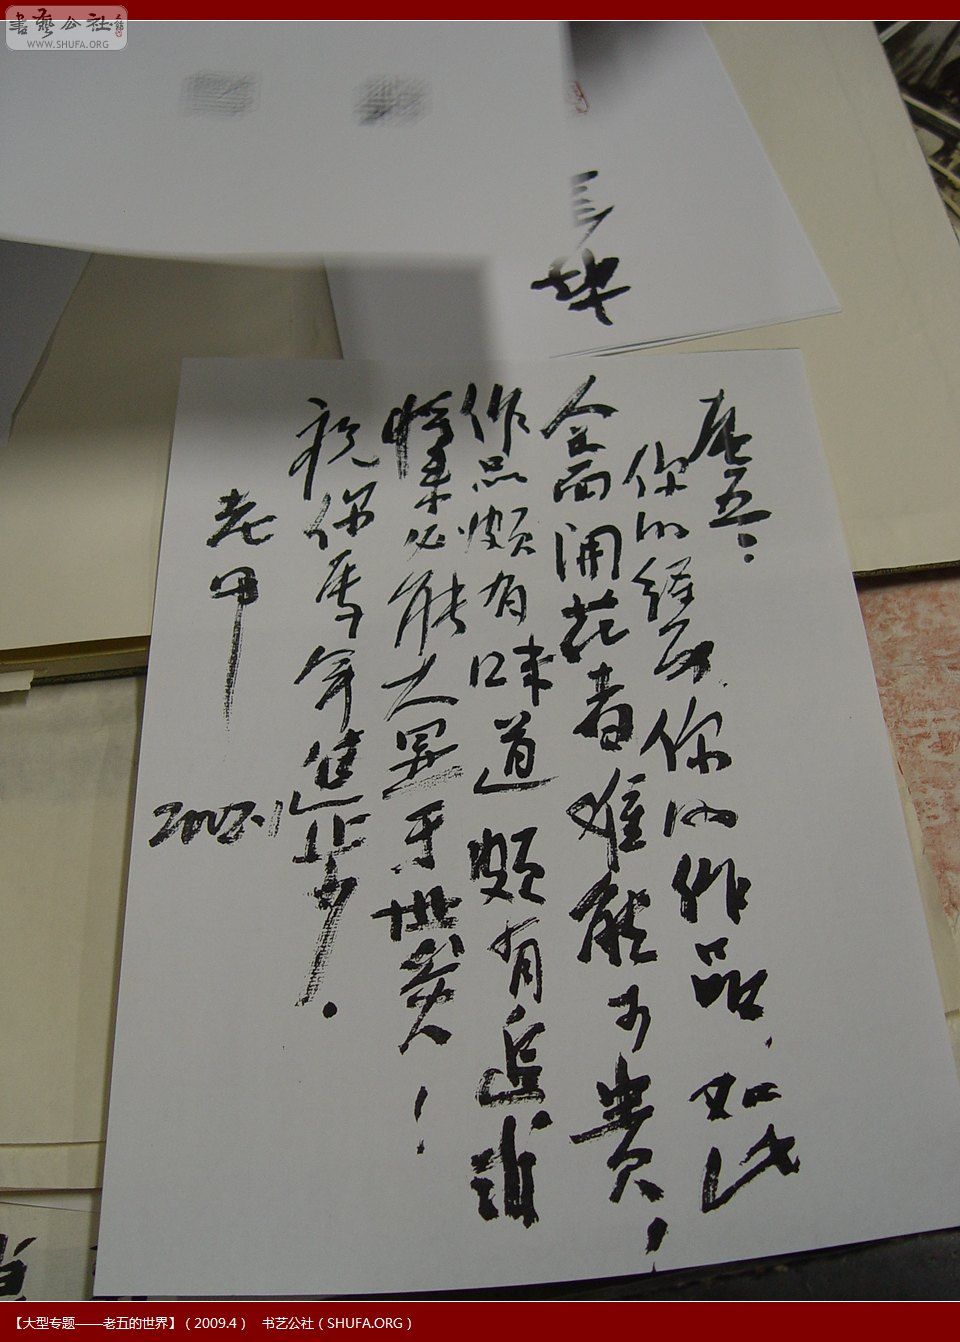 書藝公社
WWW.SHUFA.ORG
老五:
你的经历,你的作品.如此
全面开花者难能可贵!
作品颇有味道 颇有追求
将来必能大异于世矣!
祝你马年进步.
老甲
2002.1
【大型专题——老五的世界】（2009.4） 书艺公社（SHUFA.ORG）